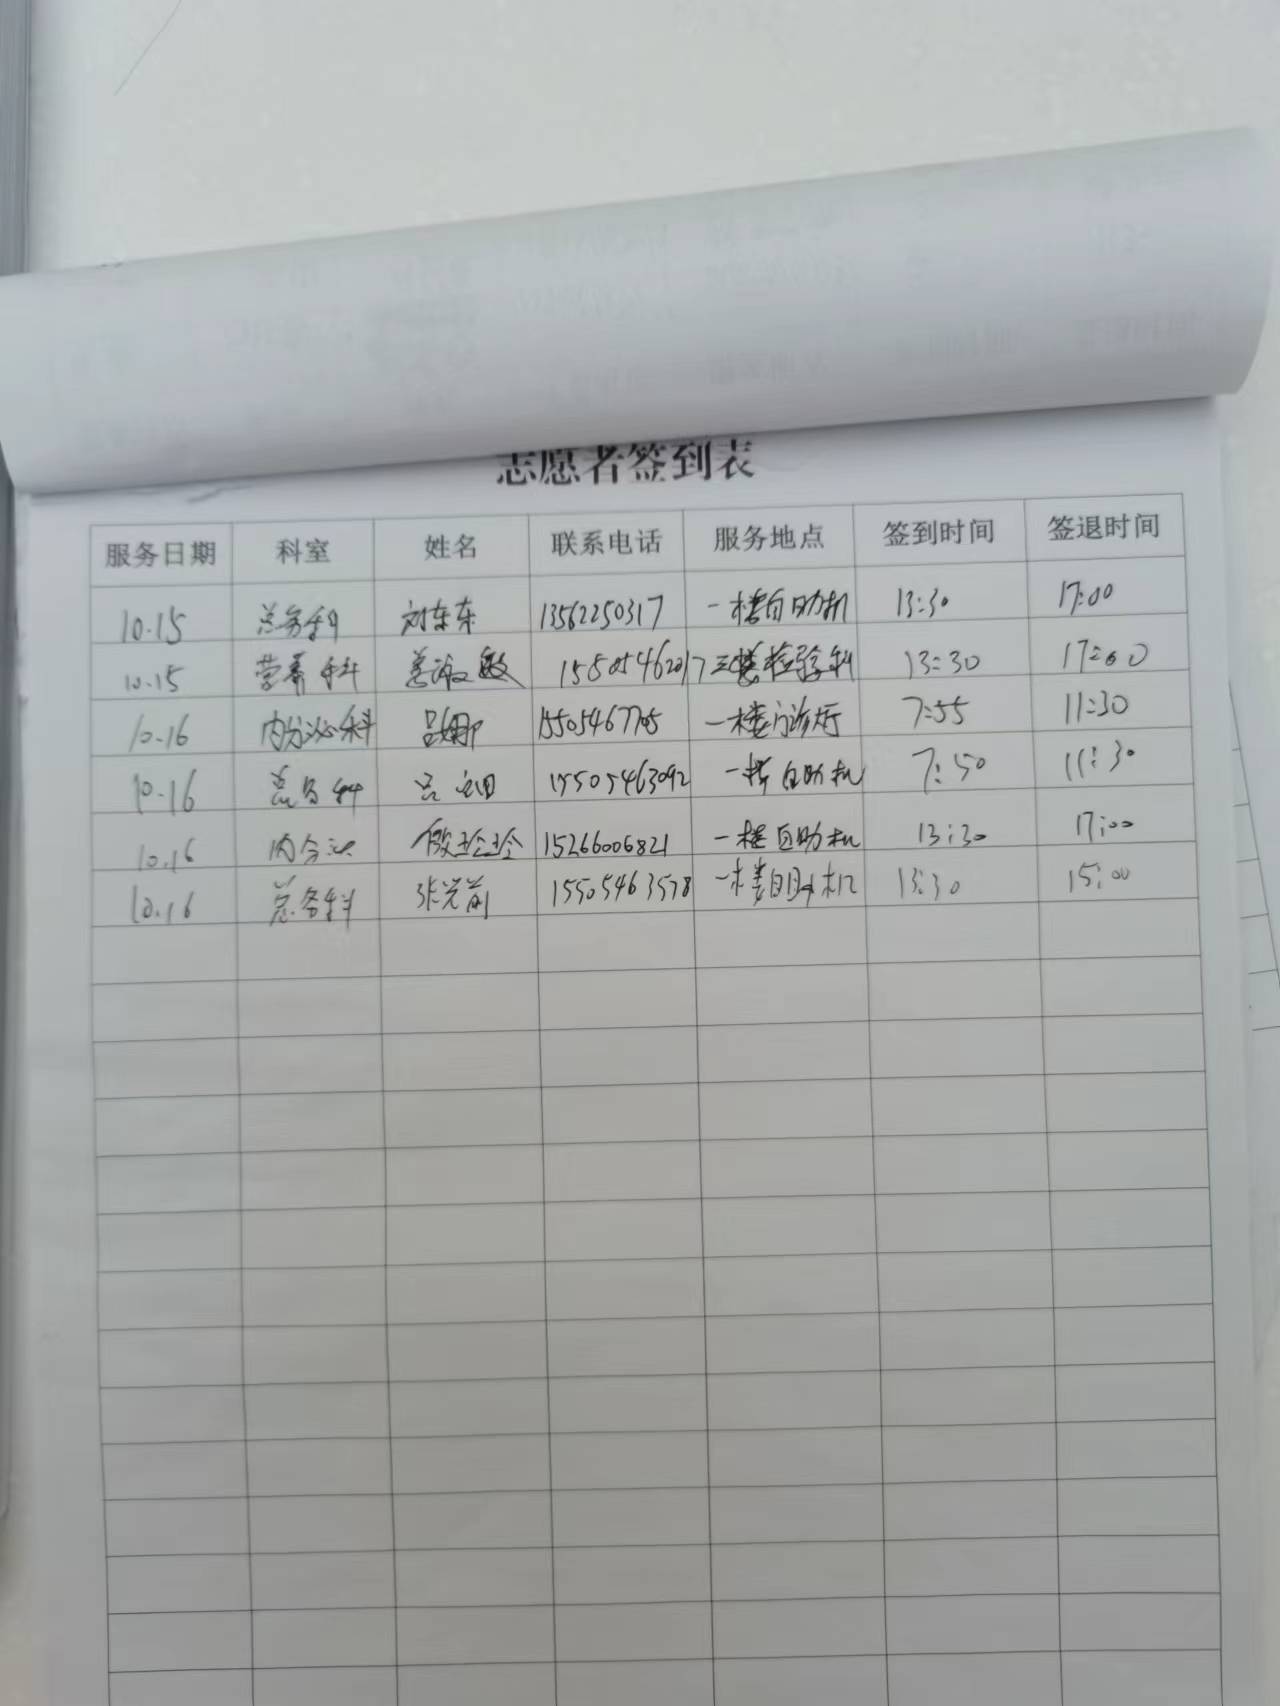 志愿者签到表
服务日期 科室 姓名 联系电话 服务地点 签到时间 签退时间
10.15 总务科 刘东东 13562250317 一楼自助机 13:30 17:00
10.15 营养科 姜淑敏 15805462017 三楼检验科 13:30 17:00
10.16 内分泌科 吕娜 15505467705 一楼门诊厅 7:55 11:30
10.16 总务科 吕 15505463092 一楼自助机 7:50 11:30
10.16 内分泌 玲玲 15266006821 一楼自助机 13:30 17:00
10.16 总务科 张光前 15505463578 一楼自助机 13:30 15:00